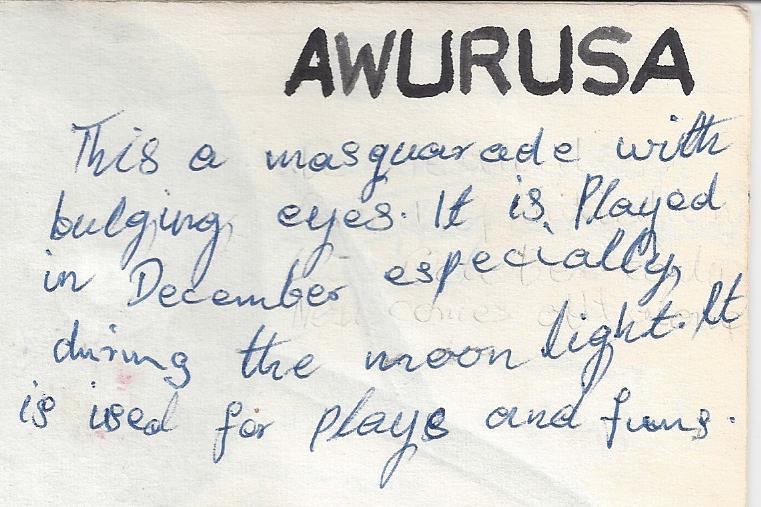 AWURUSA
This a masquarade with
bulging eyes. It is Played
in December especially,
during the moon light. It
is used for plays and funs.